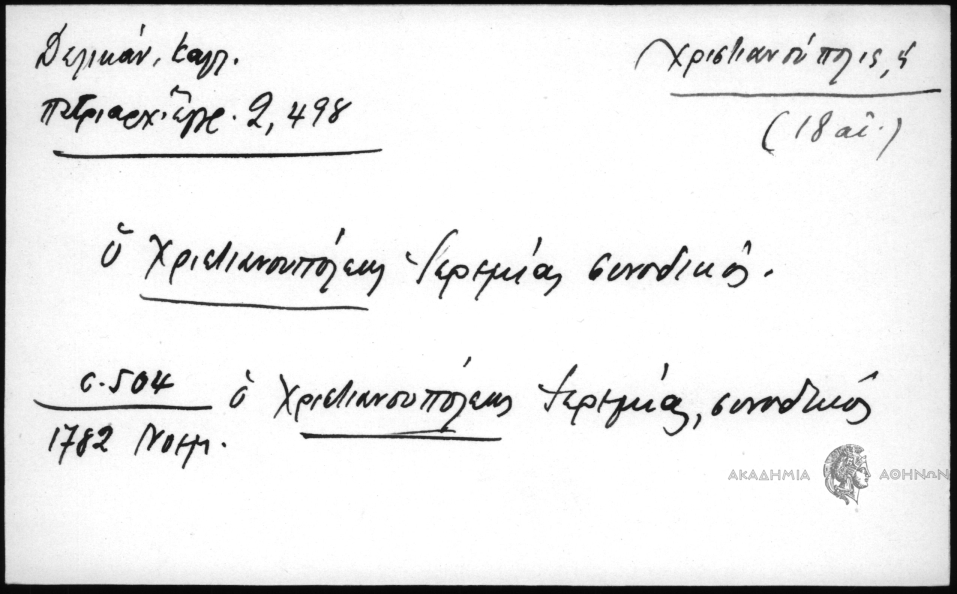 Δελικάν. Καλλ.
Πατριαρχ. ἔγγρ. 2, 498
Χριστιανούπολις, ἡ
(18 αἰ.)
ὁ Χριστιανουπόλεως Ἱερεμίας συνοδικός.
σ. 504
1782 Νοεμ.
ὁ Χριστιανουπόλεως Ἱερεμίας, συνοδικός
ΑΚΑΔΗΜΙΑ ΑΘΗΝΩΝ